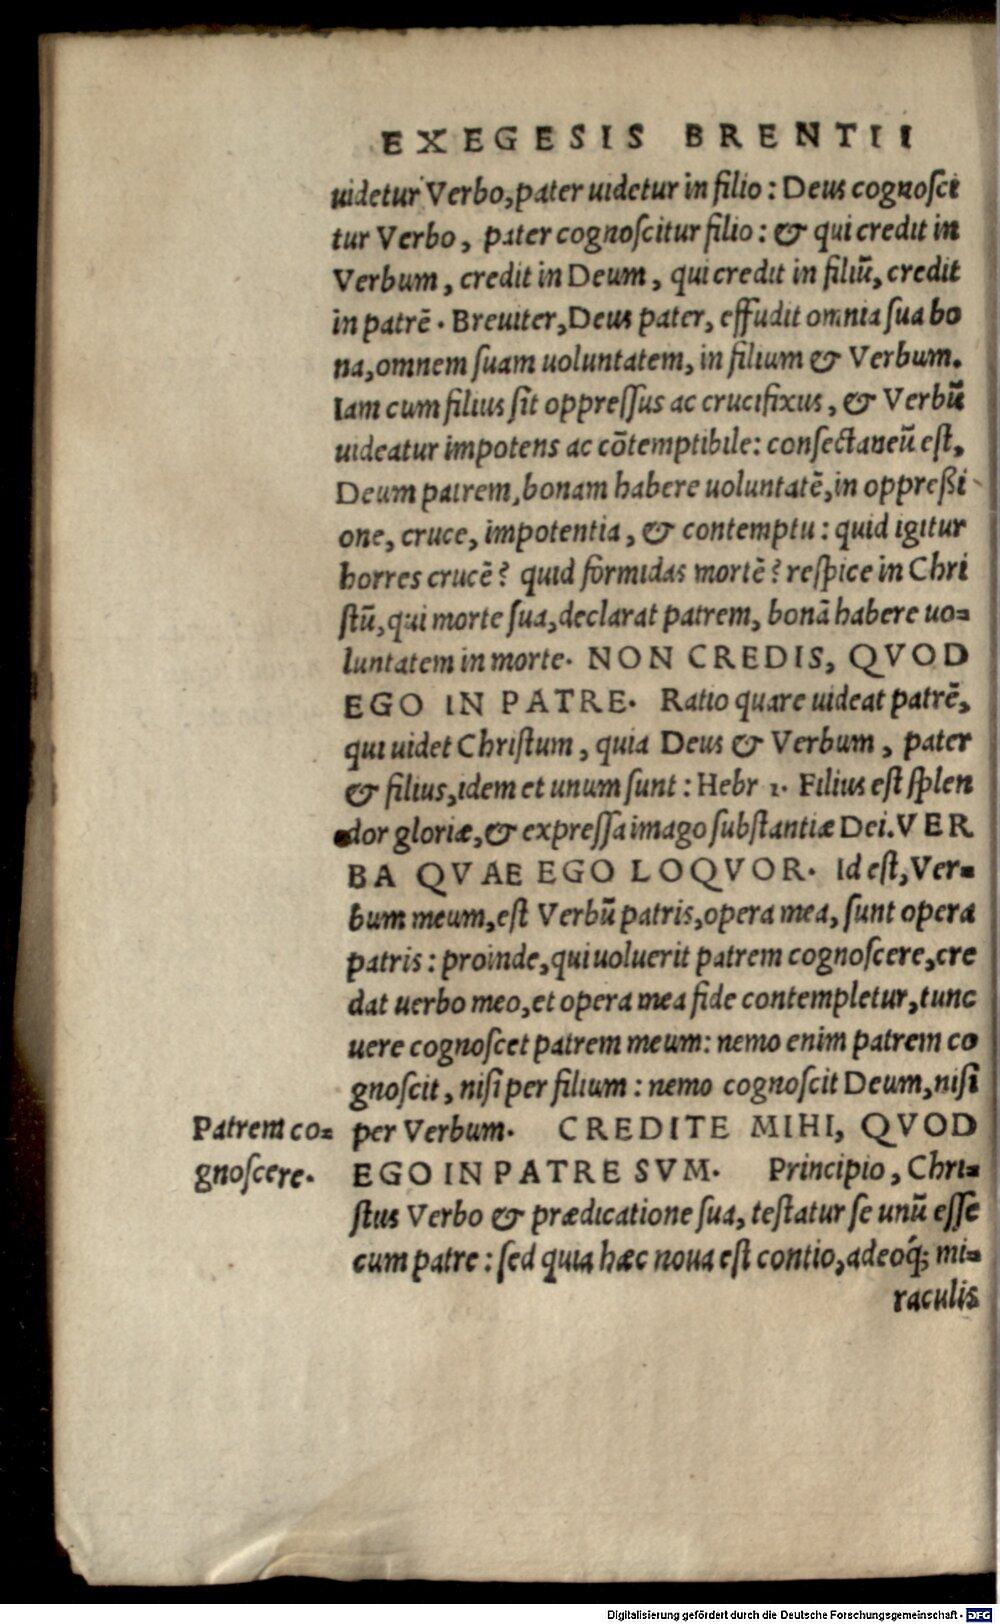 EXEGESIS BRENTII
uidetur Verbo, pater uidetur in filio: Deus cognosci
tur Verbo, pater cognoscitur filio: & qui credit in
Verbum, credit in Deum, qui credit in filiū, credit
in patrē. Breuiter, Deus pater, effudit omnia sua bo
na, omnem suam uoluntatem, in filium & Verbum.
Iam cum filius sit oppressus ac crucifixus, & Verbū
uideatur impotens ac cōtemptibile: consectaneū est,
Deum patrem, bonam habere uoluntatē, in oppreßi
one, cruce, impotentia, & contemptu: quid igitur
horres crucē? quid formidas mortē? respice in Chri
stū, qui morte sua, declarat patrem, bonā habere uo=
luntatem in morte. NON CREDIS, QVOD
EGO IN PATRE. Ratio quare uideat patrē,
qui uidet Christum, quia Deus & Verbum, pater
& filius, idem et unum sunt: Hebr 1. Filius est splen
dor gloriæ, & expressa imago substantiæ Dei. VER
BA QVAE EGO LOQVOR. Id est, Ver=
bum meum, est Verbū patris, opera mea, sunt opera
patris: proinde, qui uoluerit patrem cognoscere, cre
dat uerbo meo, et opera mea fide contempletur, tunc
uere cognoscet patrem meum: nemo enim patrem co
gnoscit, nisi per filium: nemo cognoscit Deum, nisi
Patrem co=
gnoscere.
per Verbum. CREDITE MIHI, QVOD
EGO IN PATRE SVM. Principio, Chri=
stus Verbo & prædicatione sua, testatur se unū esse
cum patre: sed quia hæc noua est contio, adeoq́; mi=
raculis
Digitalisierung gefördert durch die Deutsche Forschungsgemeinschaft - DFG